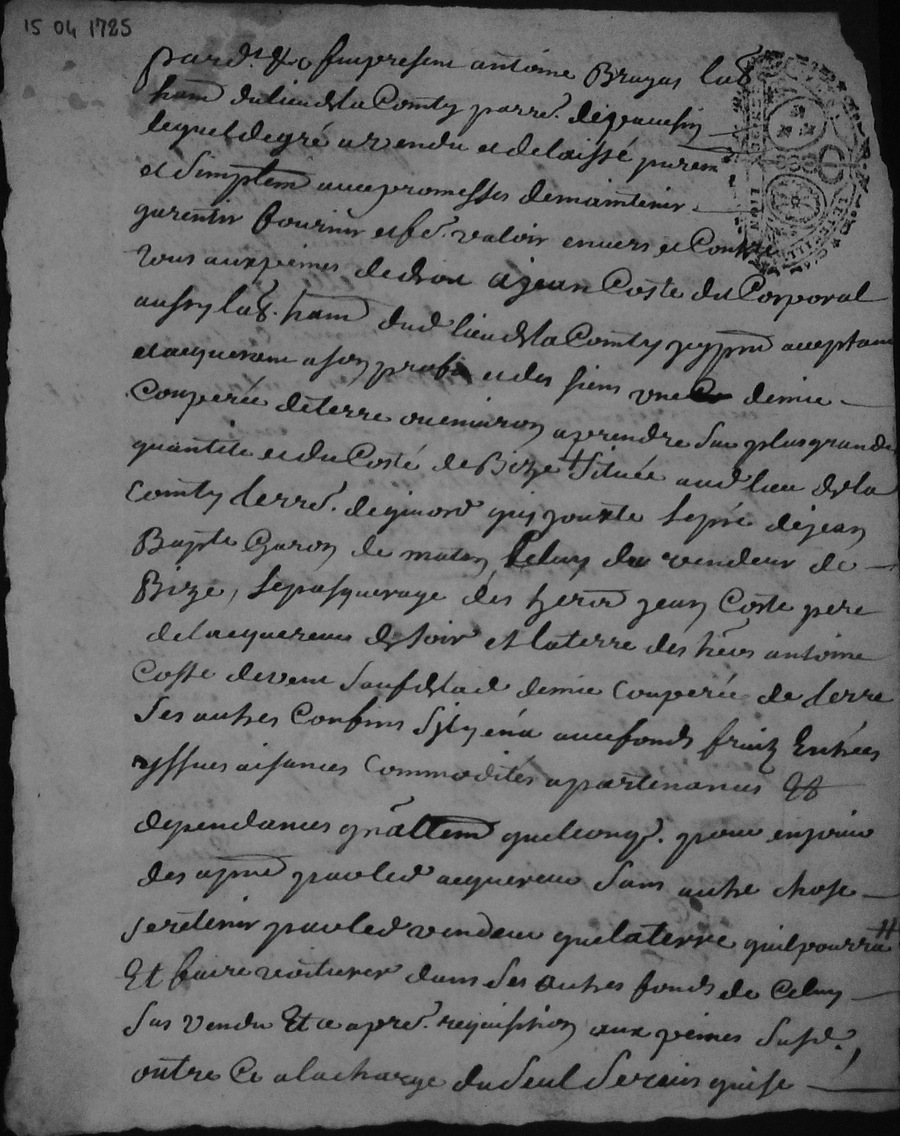 15 04 1725
par dt &c fut present antoine Bruyas lab.
ham du lieu de la Comty parr. de
lequel de gré a vendu et delaissé purem.
et simplem avec promesses de maintenir
garentir fournir et fe. valoir envers et Contre
tous aux peines de droit a jean Coste du Corporal
aussy lab. ham dud lieu de la Comty icy pnt acceptant
et acquerant a son profit et des siens une demie
Couperée de terre ou environ a prendre sur plus grande
quantite et du Costé de Bize + située aud lieu de la
Comty terre. qui jouxte le pré de jean
Bapte Garon de matin, Celuy du vendeur de
Bize, le pasquerage des hers jean Coste pere
de lacquereur de soir et la terre des hers antoine
Coste de vent sauf de lad demie Couperée de terre
ses autres Confins sy en a avec fonds fruitz Entrées
yssues aisances Commodités apartenances Et
dependances gnallem quelconq. pour en jouir
des apnt par led acquereur sans autre chose
se retenir par led vendeur que la terre quil pourra #
Et faire voiturer dans ses autres fonds de Celuy
sus vendu Et ce apre. requisition aux peines susd.
outre Ce a la charge du seul servis qui se